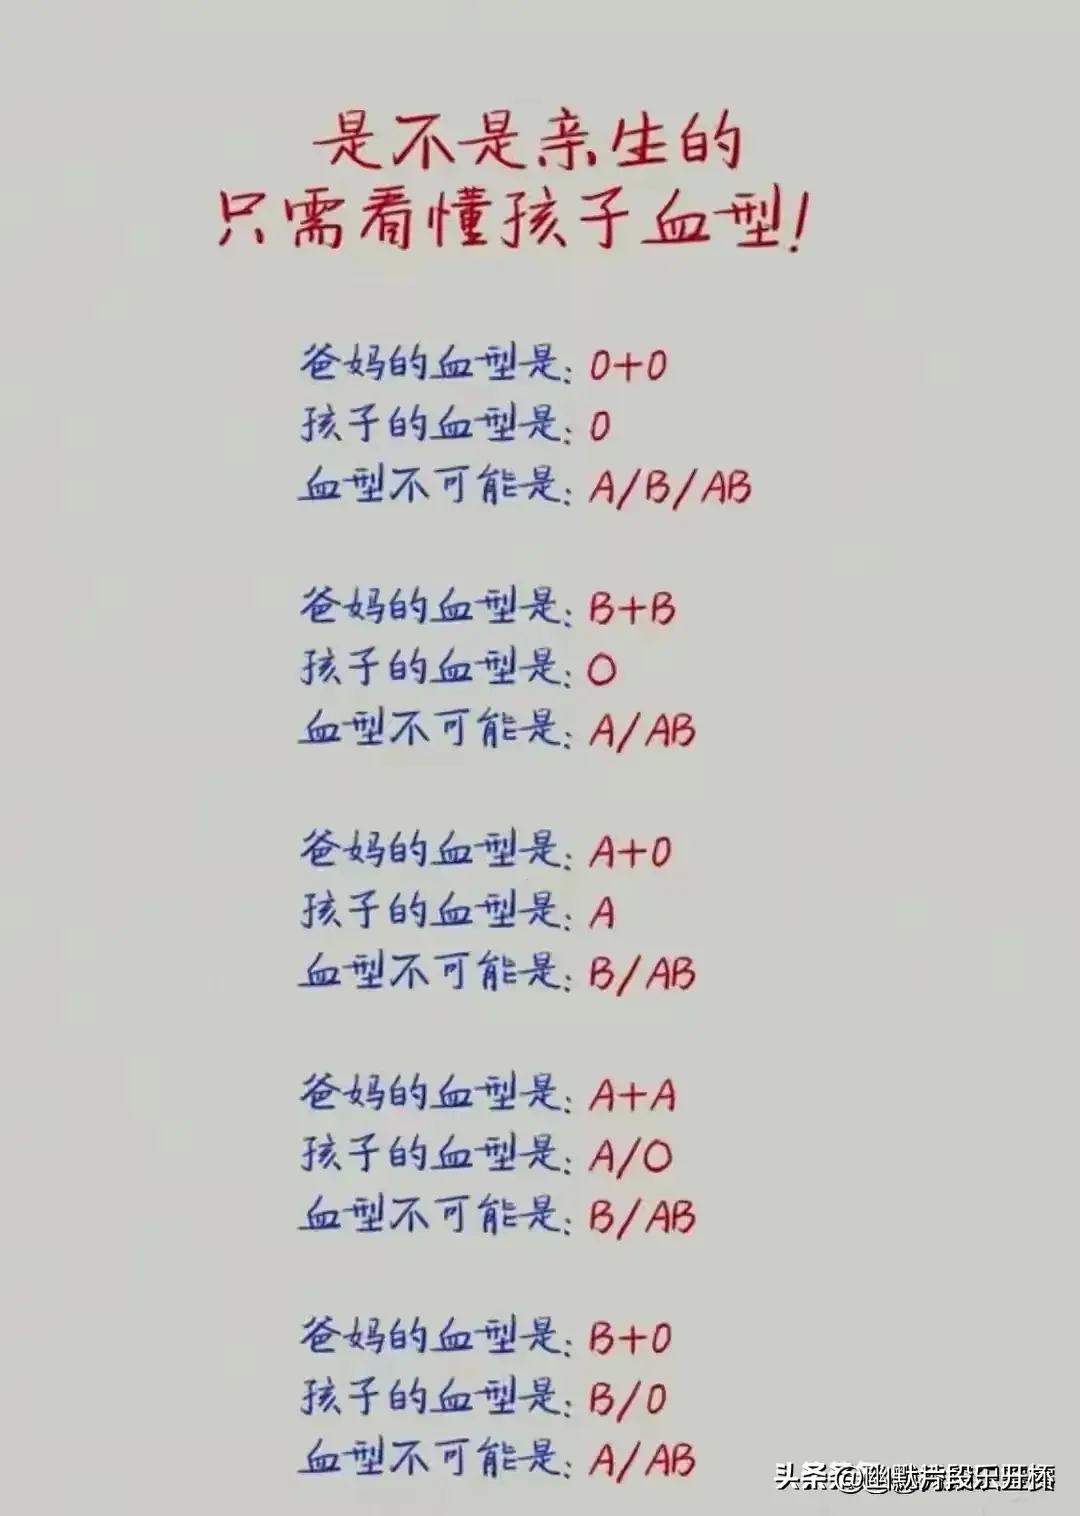 是不是亲生的
只需看懂孩子血型!
爸妈的血型是: O+O
孩子的血型是: O
血型不可能是: A/B/AB
爸妈的血型是: B+B
孩子的血型是: O
血型不可能是: A/AB
爸妈的血型是: A+O
孩子的血型是: A
血型不可能是: B/AB
爸妈的血型是: A+A
孩子的血型是: A/O
血型不可能是: B/AB
爸妈的血型是: B+O
孩子的血型是: B/O
血型不可能是: A/AB
头条